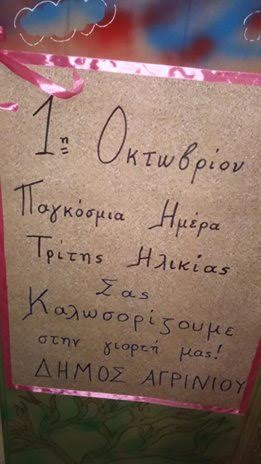 1η Οκτωβρίου
Παγκόσμια Ημέρα
Τρίτης Ηλικίας
Σας
Καλωσορίζουμε
στην γιορτή μας!
ΔΗΜΟΣ ΑΓΡΙΝΙΟΥ